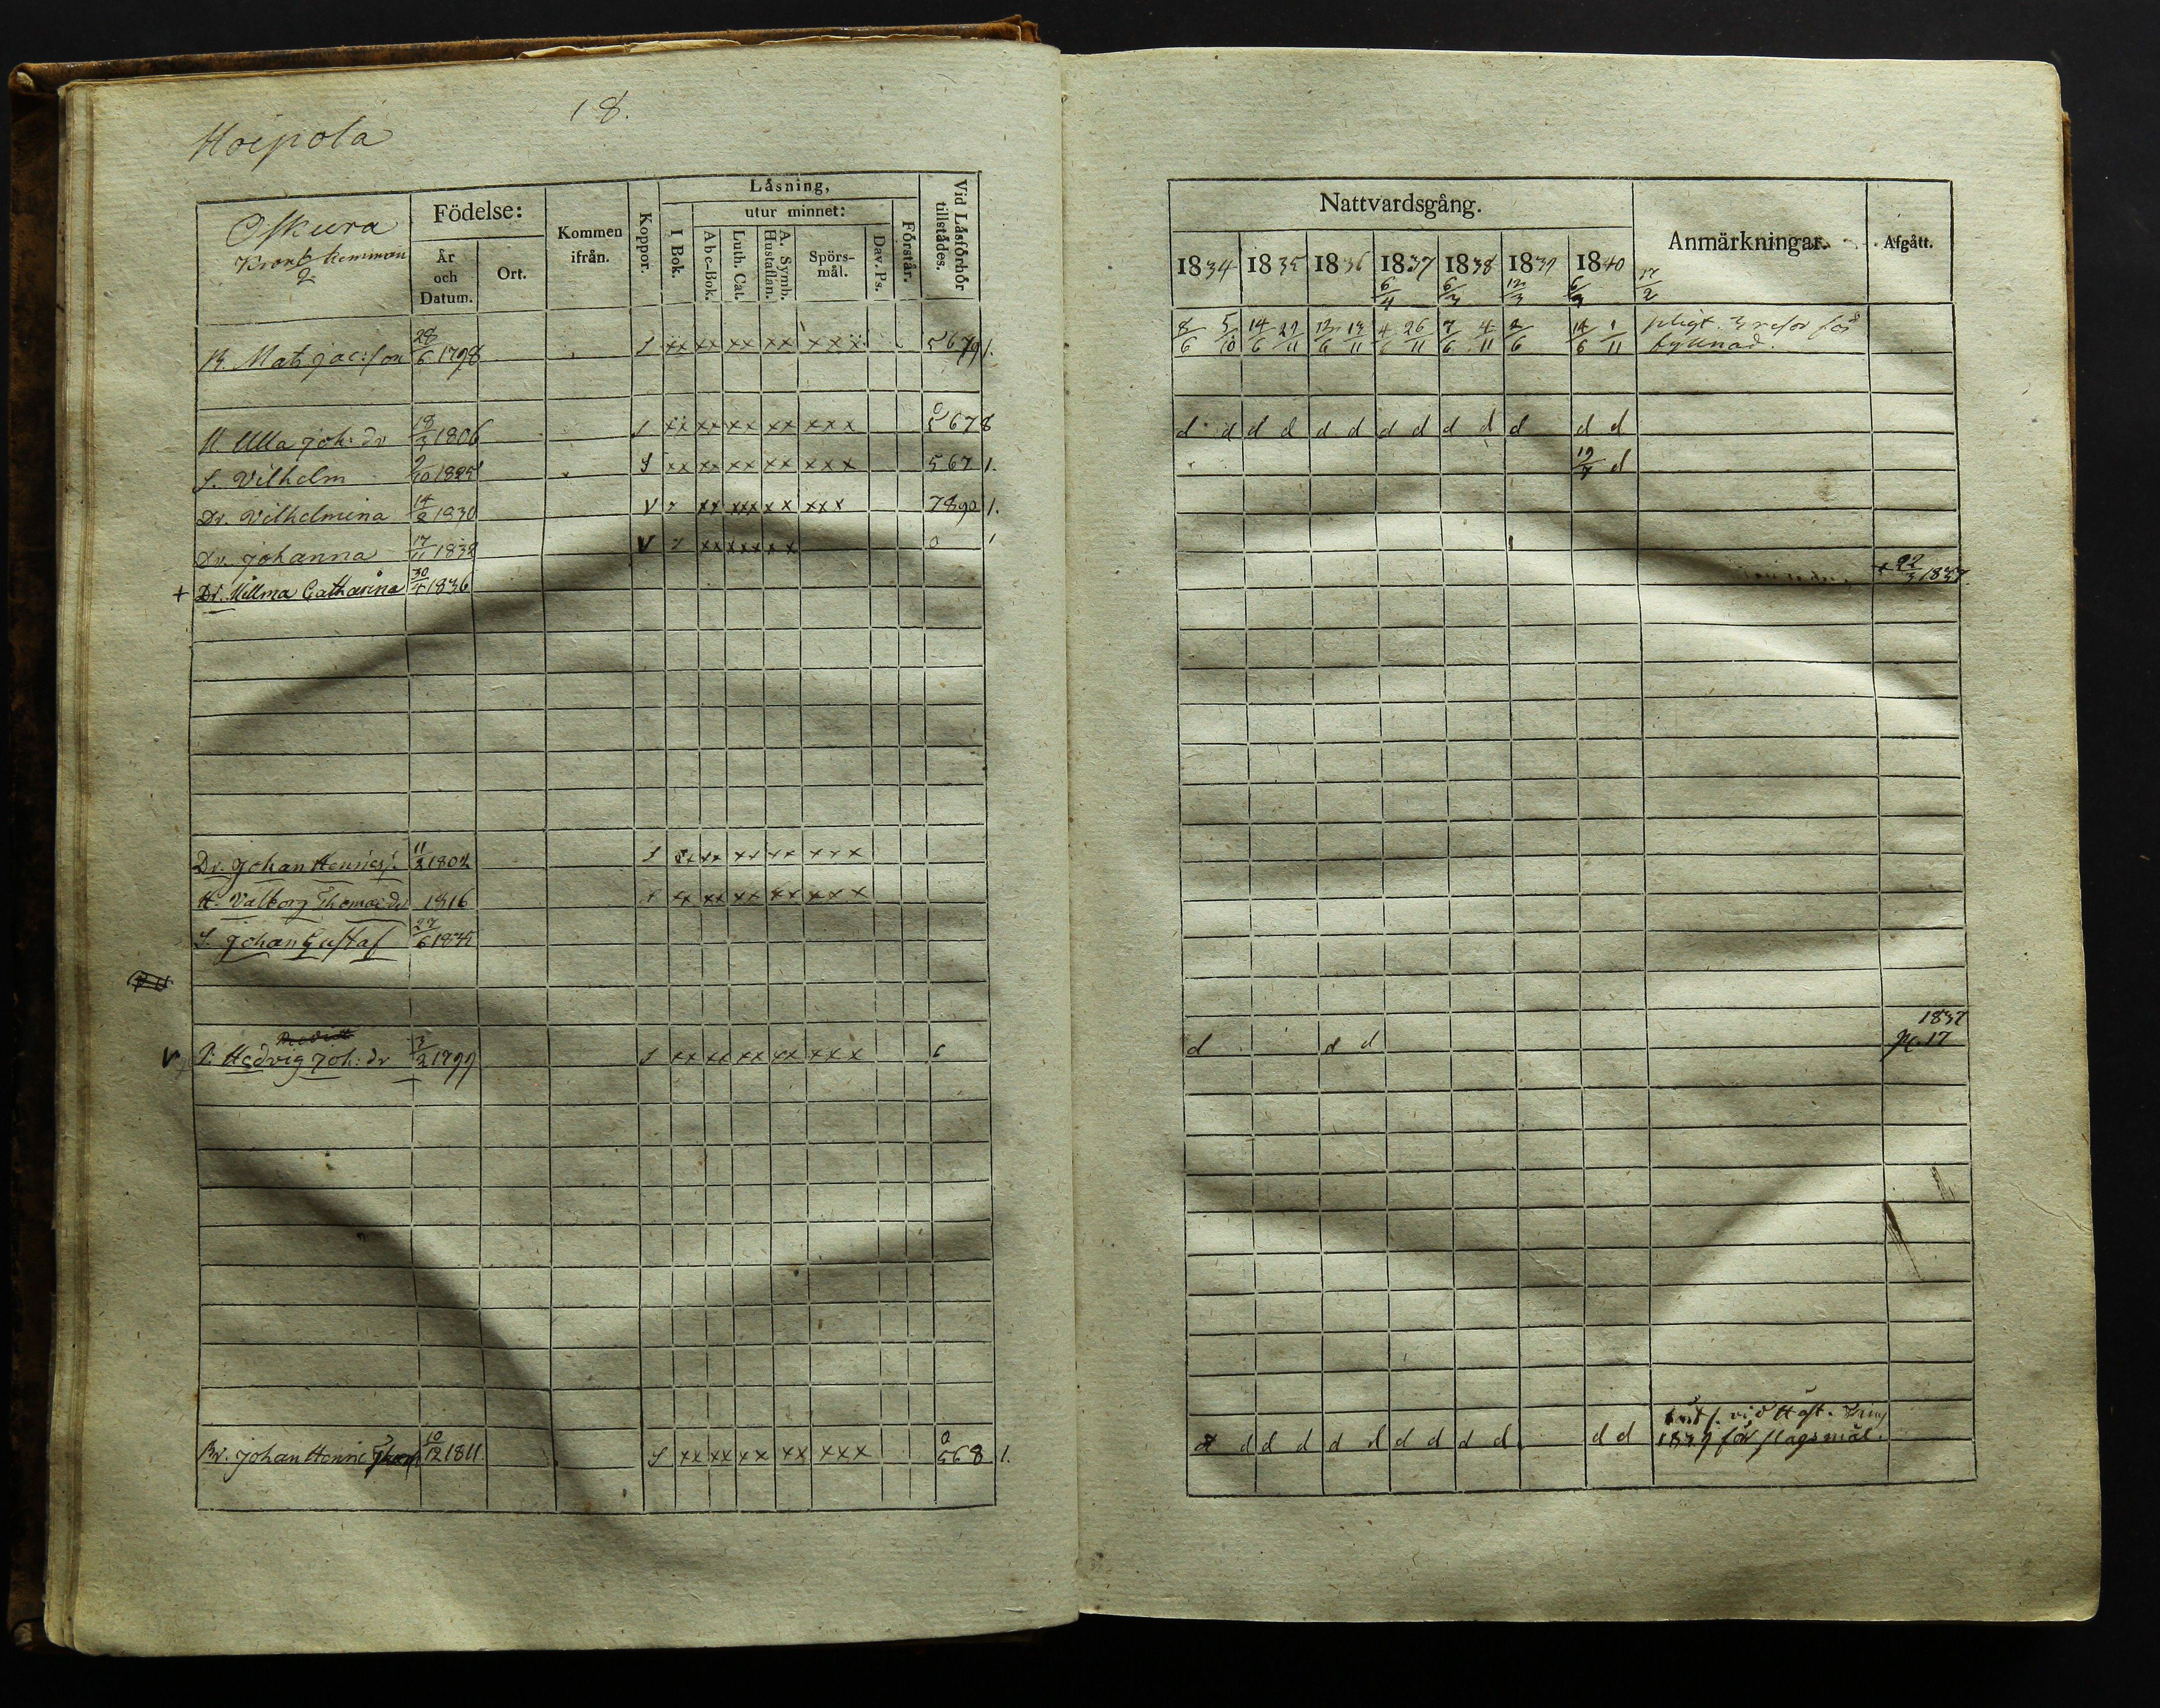 18.
Moipola
Oskura
Kronb hemman
2
Födelse:
År och Datum.
Ort.
Kommen ifrån.
Koppor.
Låsning,
utur minnet:
I Bok.
Abc-Bok.
Luth. Cat.
A. Symb. Hustaflan.
Spörsmål.
Dav. Ps.
Förstår.
Vid Låsförhör tillstådes.
B. Mats Jac:son 28/6 1798 S xx xx xx xx xxx 56791.
H. Ulla Joh: dr 18/3 1806 S xx xx xx xx xxx 5678
S. Vilhelm 9/10 1825 S xx xx xx xx xxx 567 1.
Dr. Vilhelmina 14/2 1830 V xx xxx xx xxx 7890 1.
Dr. Johanna 17/11 1832 V xx xxx xx 0 1
+ Dr. Millma Catharina 30/4 1836
Dr. Johan Henrics. 11/2 1802 S xx xx xx xxx
H. Valborg Thomaedr 1816 xx xx xx xx xxx
S. Johan Gustaf 27/6 1835
V P. Hedvig Joh: dr 3/2 1799 S xx xx xx xx xxx 6
Br. Johan Henric 10/12 1811. S xx xx xx xx xxx 568 1.
Nattvardsgång.
Anmärkningar.
Afgått.
1834 1835 1836 1837 1838 1839 1840
6/4 6/3 12/3 6/3 17/2
8/6 5/10 14/6 29/11 12/6 13/11 4/6 26/11 7/6 4/11 2/6 14/6 1/11 pligt. 3 rdr för
fyllnad.
d d d d d d d d d d d d d
19/7 d
+ 22/3 1837.
1837
d d d p. 17
vid Höst. Ting
d d d d d d d d d d d d 1839 för slagsmål.